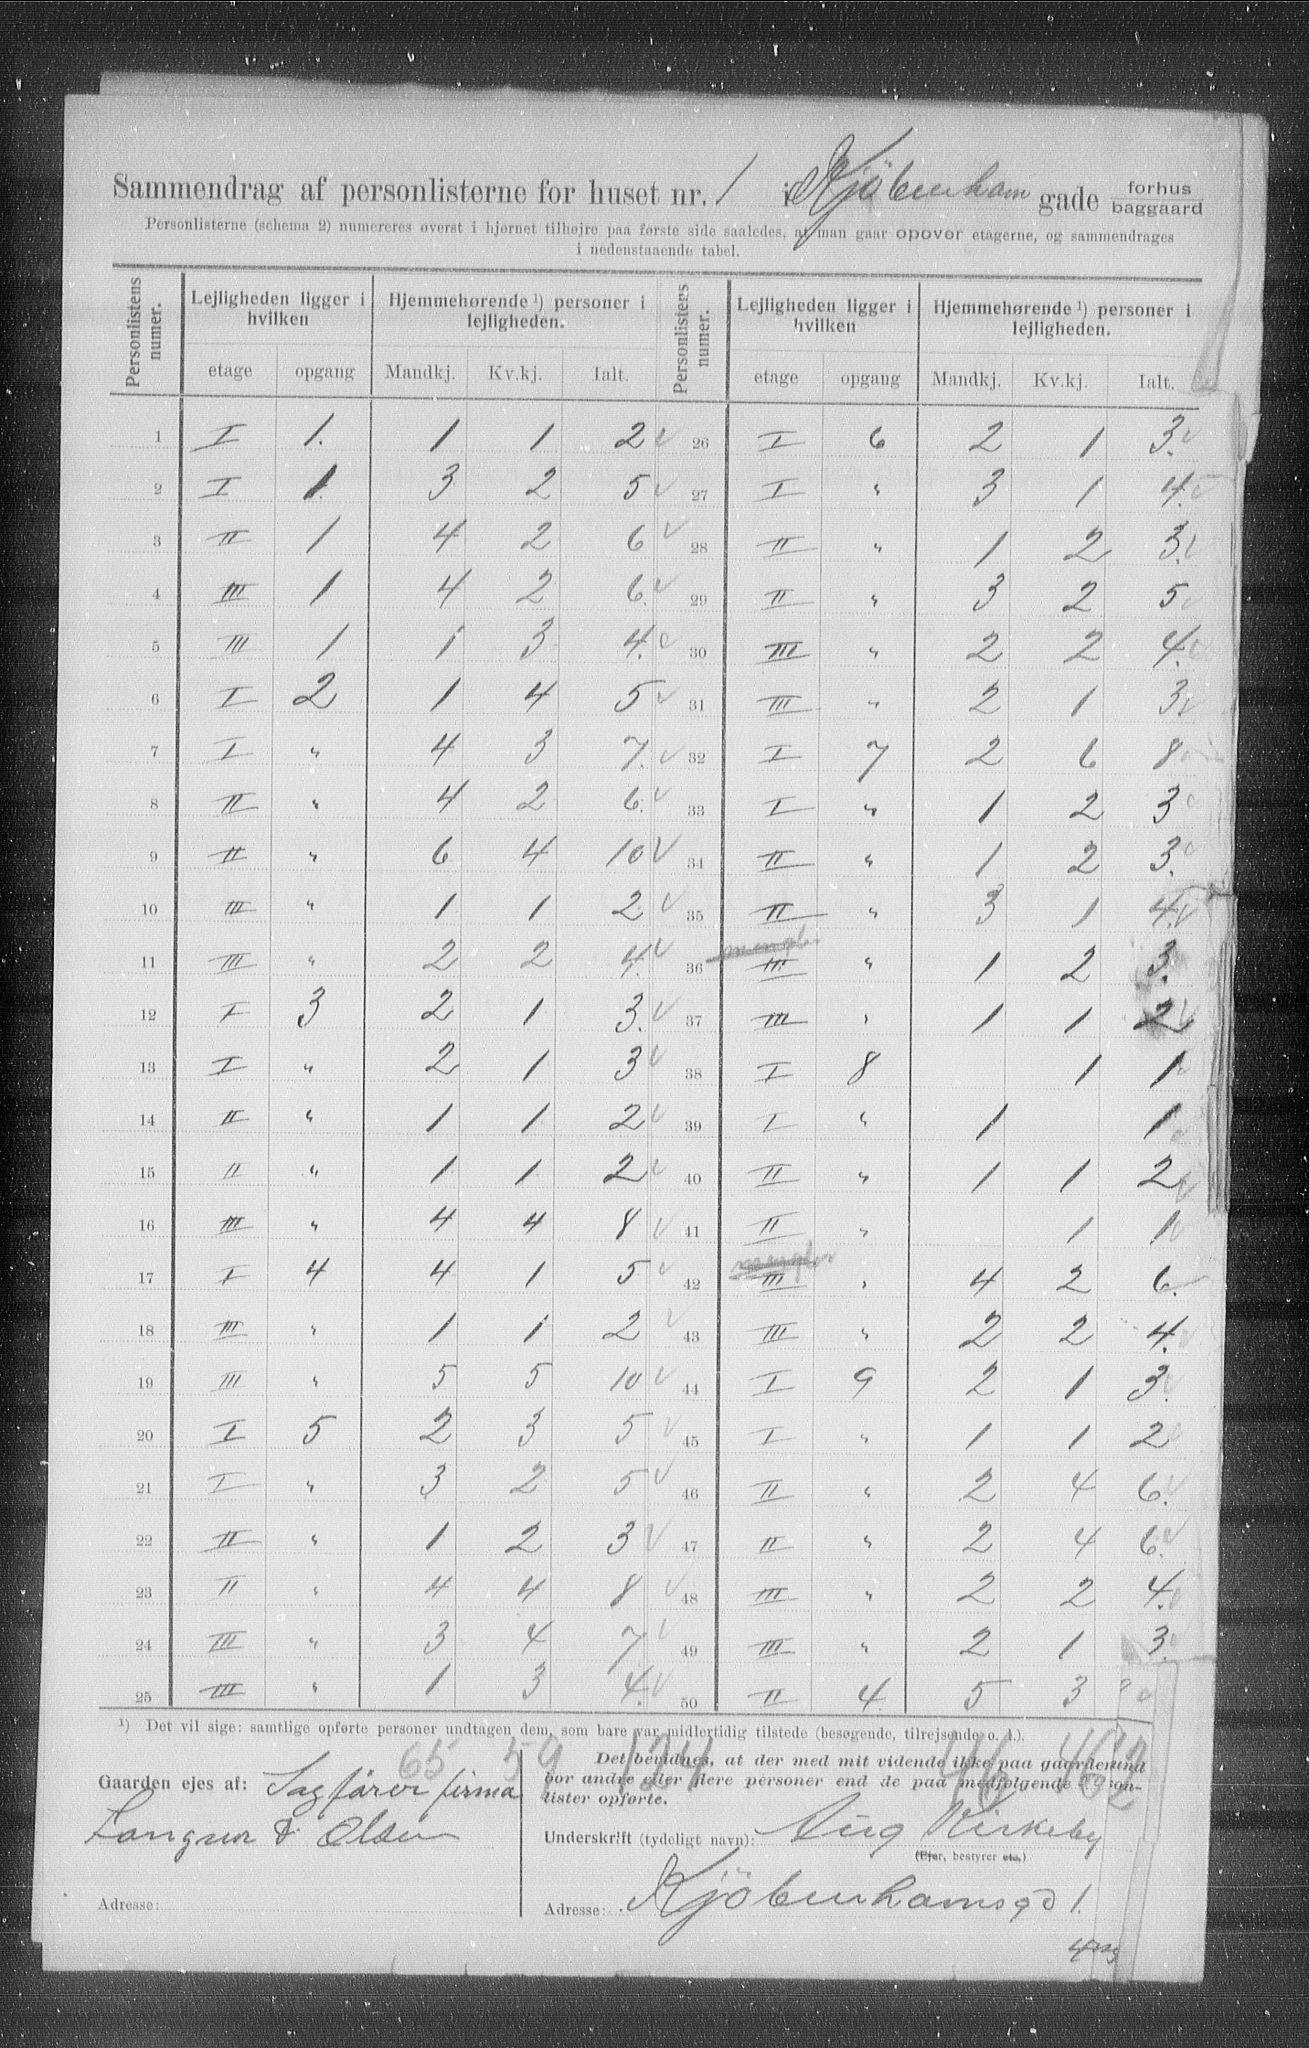 Sammendrag af personlisterne for huset nr. 1 i Kjöbenham gade forhus baggaard
Personlisterne (schema 2) numereres øverst i hjørnet tilhøjre paa første side saaledes, at man gaar opover etagerne, og sammendrages
i nedenstaaende tabel.
Personlistens numer. Lejligheden ligger i hvilken Hjemmehørende ¹) personer i lejligheden. Personlistens numer. Lejligheden ligger i hvilken Hjemmehørende ¹) personer i lejligheden.
etage opgang Mandkj. Kv.kj. Ialt. etage opgang Mandkj. Kv.kj. Ialt.
1 I 1. 1 1 2 26 I 6 2 1 3.
2 I 1 3 2 5 27 I " 3 1 4.
3 II 1 4 2 6 28 II " 1 2 3.
4 III 1 4 2 6. 29 II " 3 2 5
5 III 1 1 3 4. 30 III " 2 2 4.
6 I 2 1 4 5 31 III " 2 1 3
7 I " 4 3 7. 32 I 7 2 6 8
8 II " 4 2 6. 33 I " 1 2 3
9 II " 6 4 10 34 II " 1 2 3.
10 III " 1 1 2 35 II " 3 1 4.
mangler
11 III " 2 2 4. 36 III " 1 2 3.
12 I 3 2 1 3. 37 III " 1 1 2
13 I " 2 1 3 38 I 8 1 1
14 II " 1 1 2 39 I " 1 1
15 II " 1 1 2 40 II " 1 1 2
16 III " 4 4 8 41 II " 1 1
mangler
17 I 4 4 1 5 42 III " 4 2 6.
18 III " 1 1 2 43 III " 2 2 4.
19 III " 5 5 10 44 I 9 2 1 3.
20 I 5 2 3 5 45 I " 1 1 2
21 I " 3 2 5 46 II " 2 4 6.
22 II " 1 2 3 47 II " 2 4 6.
23 II " 4 4 8 48 III " 2 2 4.
24 III " 3 4 7 49 III " 2 1 3.
25 III " 1 3 4. 50 II 4 5 3
¹) Det vil sige: samtlige opførte personer undtagen dem, som bare var midlertidig tilstede (besøgende, tilrejsende o. l.).
65 59 124 46
Gaarden ejes af: Sagførerfirma
Langum & Olsen
Adresse:
Det bevidnes, at der med mit vidende ikke paa gaardsrund
bor andre eller flere personer end de paa medfølgende person-
lister opførte.
Underskrift (tydeligt navn): Aug Kirkeby
(Ejer, bestyrer etc.)
Adresse: Kjöbenhamsgd 1.